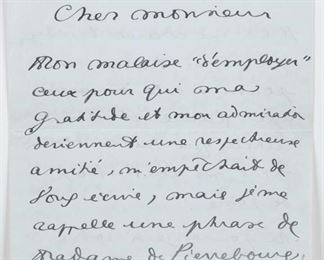 Cher monsieur
Mon malaise "d'employer"
ceux pour qui ma
gratitude et mon admiration
deviennent une respectueuse
amitié, m'empêchait de
vous écrire, mais je me
rappelle une phrase de
Madame de Pierrebourg,